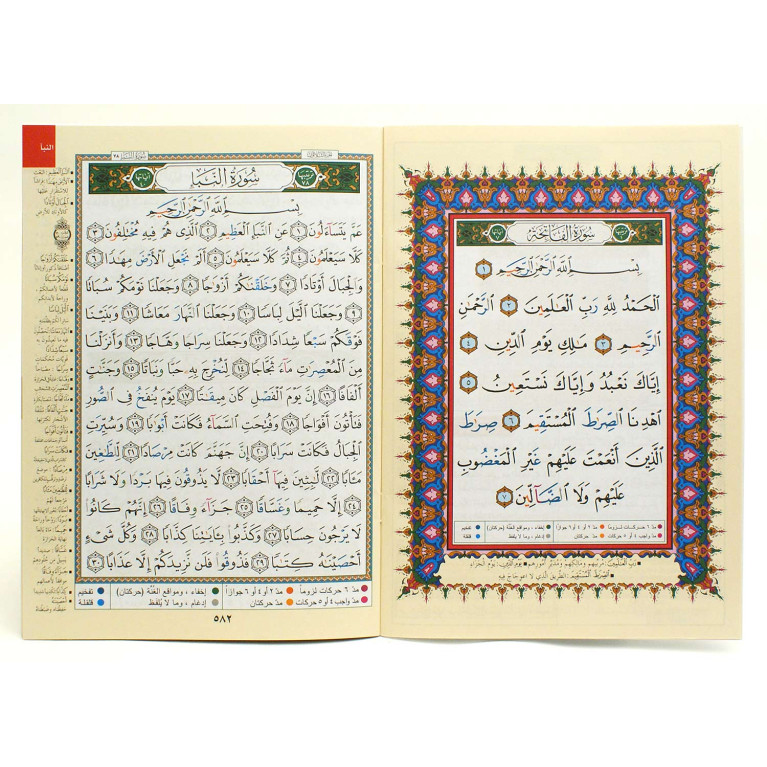 سُورَةُ الفَاتِحَةِ
بِسْمِ ٱللَّهِ ٱلرَّحْمَٰنِ ٱلرَّحِيمِ ١
ٱلْحَمْدُ لِلَّهِ رَبِّ ٱلْعَٰلَمِينَ ٢ ٱلرَّحْمَٰنِ
ٱلرَّحِيمِ ٣ مَٰلِكِ يَوْمِ ٱلدِّينِ ٤
إِيَّاكَ نَعْبُدُ وَإِيَّاكَ نَسْتَعِينُ ٥
ٱهْدِنَا ٱلصِّرَٰطَ ٱلْمُسْتَقِيمَ ٦ صِرَٰطَ
ٱلَّذِينَ أَنْعَمْتَ عَلَيْهِمْ غَيْرِ ٱلْمَغْضُوبِ
عَلَيْهِمْ وَلَا ٱلضَّآلِّينَ ٧
مدّ ٦ حركات لزوماً مدّ ٢ أو ٤ أو ٦ جوازاً إخفاء ، ومواقع الغُنَّة (حركتان) تفخيم
مدّ واجب ٤ أو ٥ حركات مدّ حركتان إدغام ، وما لا يُلفَظ قلقلة
النبأ
سُورَةُ النَّبَإِ ٧٨
سُورَةُ النَّبَإِ
بِسْمِ ٱللَّهِ ٱلرَّحْمَٰنِ ٱلرَّحِيمِ
عَمَّ يَتَسَآءَلُونَ ١ عَنِ ٱلنَّبَإِ ٱلْعَظِيمِ ٢ ٱلَّذِى هُمْ فِيهِ مُخْتَلِفُونَ ٣
كَلَّا سَيَعْلَمُونَ ٤ ثُمَّ كَلَّا سَيَعْلَمُونَ ٥ أَلَمْ نَجْعَلِ ٱلْأَرْضَ مِهَٰدًا ٦
وَٱلْجِبَالَ أَوْتَادًا ٧ وَخَلَقْنَٰكُمْ أَزْوَٰجًا ٨ وَجَعَلْنَا نَوْمَكُمْ سُبَاتًا
٩ وَجَعَلْنَا ٱلَّيْلَ لِبَاسًا ١٠ وَجَعَلْنَا ٱلنَّهَارَ مَعَاشًا ١١ وَبَنَيْنَا
فَوْقَكُمْ سَبْعًا شِدَادًا ١٢ وَجَعَلْنَا سِرَاجًا وَهَّاجًا ١٣ وَأَنزَلْنَا
مِنَ ٱلْمُعْصِرَٰتِ مَآءً ثَجَّاجًا ١٤ لِّنُخْرِجَ بِهِۦ حَبًّا وَنَبَاتًا ١٥ وَجَنَّٰتٍ
أَلْفَافًا ١٦ إِنَّ يَوْمَ ٱلْفَصْلِ كَانَ مِيقَٰتًا ١٧ يَوْمَ يُنفَخُ فِى ٱلصُّورِ
فَتَأْتُونَ أَفْوَاجًا ١٨ وَفُتِحَتِ ٱلسَّمَآءُ فَكَانَتْ أَبْوَٰبًا ١٩ وَسُيِّرَتِ
ٱلْجِبَالُ فَكَانَتْ سَرَابًا ٢٠ إِنَّ جَهَنَّمَ كَانَتْ مِرْصَادًا ٢١ لِّلطَّٰغِينَ
مَـَٔابًا ٢٢ لَّٰبِثِينَ فِيهَآ أَحْقَابًا ٢٣ لَّا يَذُوقُونَ فِيهَا بَرْدًا وَلَا شَرَابًا
٢٤ إِلَّا حَمِيمًا وَغَسَّاقًا ٢٥ جَزَآءً وِفَاقًا ٢٦ إِنَّهُمْ كَانُوا۟
لَا يَرْجُونَ حِسَابًا ٢٧ وَكَذَّبُوا۟ بِـَٔايَٰتِنَا كِذَّابًا ٢٨ وَكُلَّ شَىْءٍ
أَحْصَيْنَٰهُ كِتَٰبًا ٢٩ فَذُوقُوا۟ فَلَن نَّزِيدَكُمْ إِلَّا عَذَابًا ٣٠
مدّ ٦ حركات لزوماً مدّ ٢ أو ٤ أو ٦ جوازاً إخفاء ، ومواقع الغُنَّة (حركتان) تفخيم
مدّ واجب ٤ أو ٥ حركات مدّ حركتان إدغام ، وما لا يُلفَظ قلقلة
٥٨٢